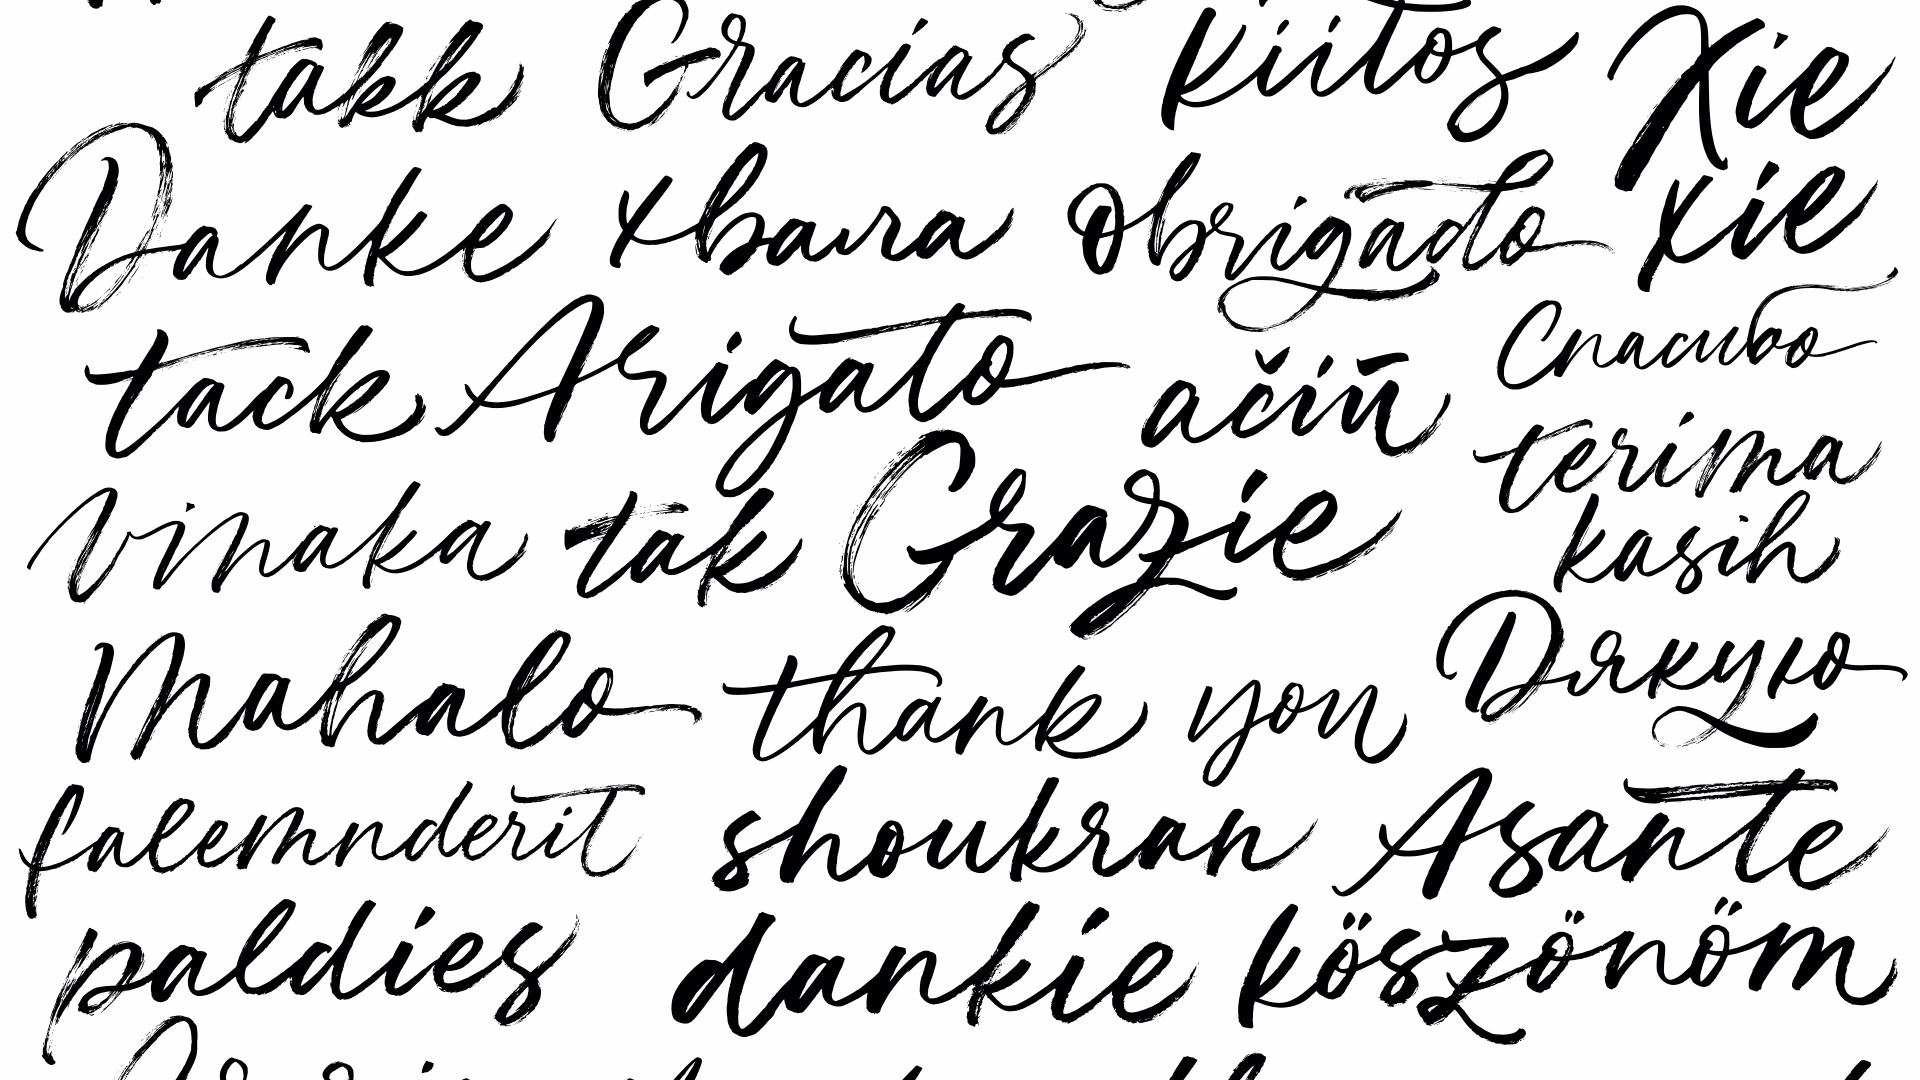 takk Gracias Kiitos Xie
Danke xbaла obrigado xie
tack Arigato ačiū Спасибо
terima
vinaka tak Grazie kasih
Mahalo thank you Дякую
falemnderit shoukran Asante
paldies dankie köszönöm